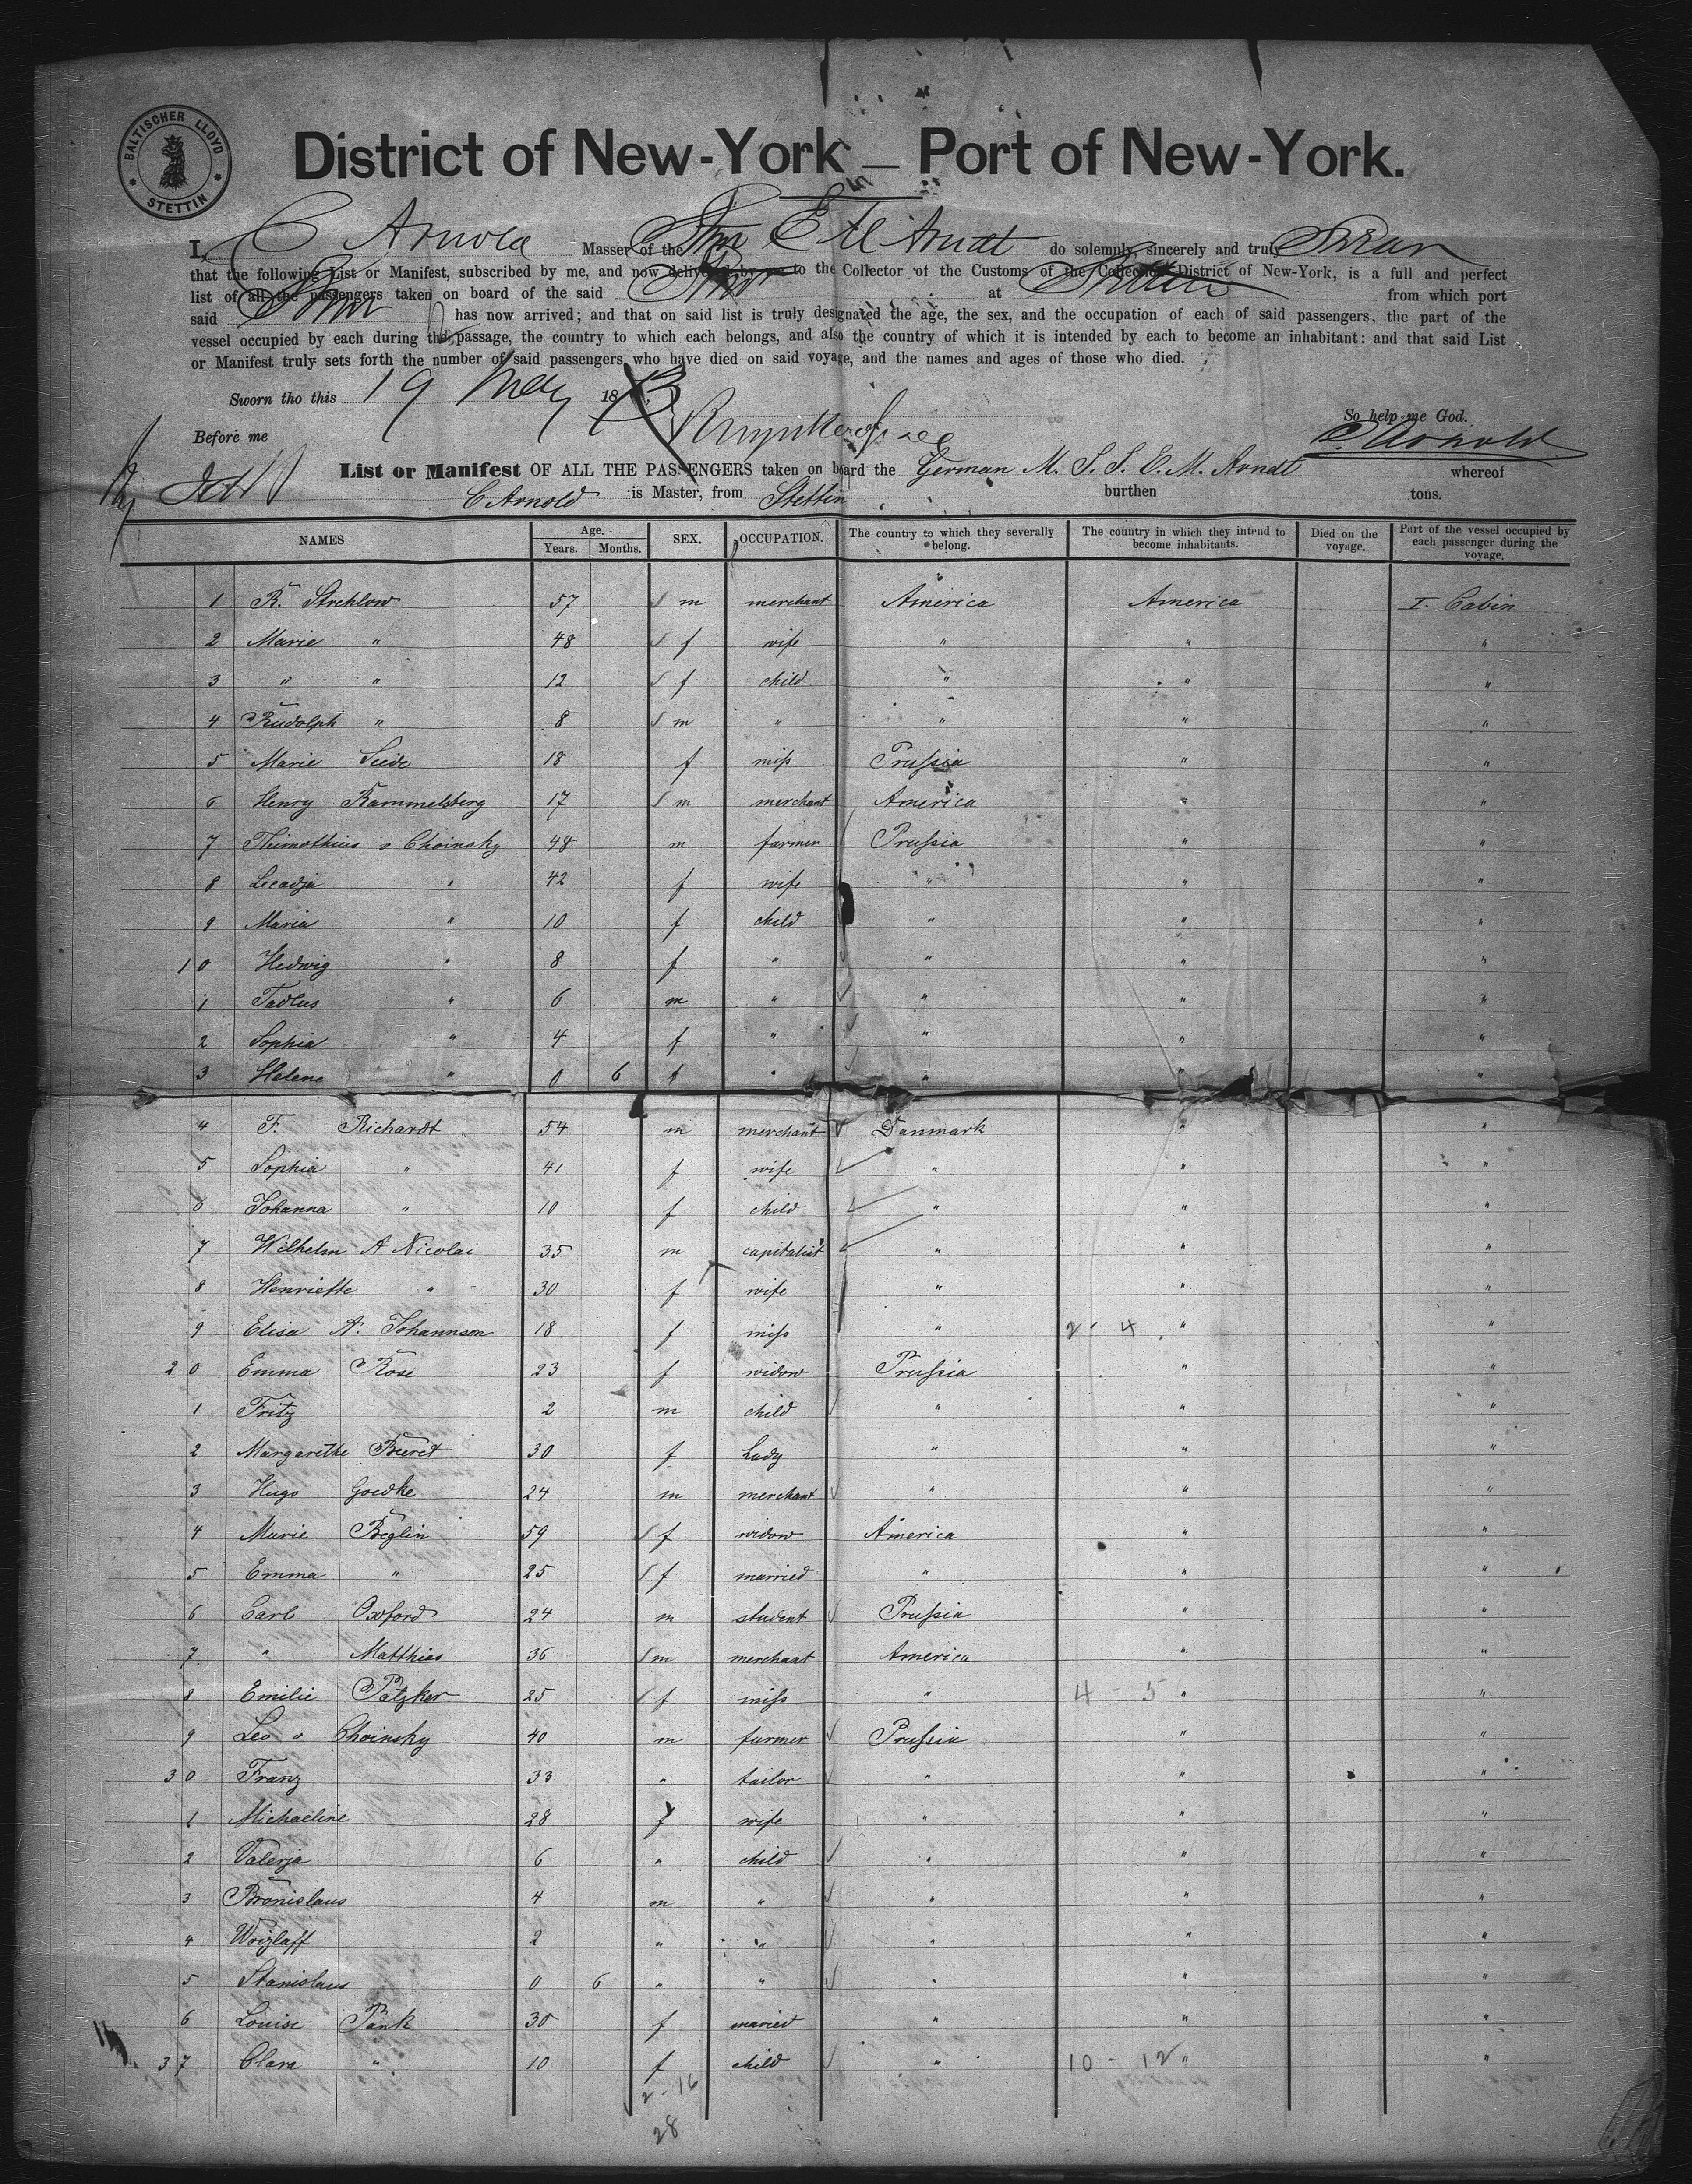 BALTISCHER LLOYD
STETTIN
District of New-York — Port of New-York.
I, C Arnold Masser of the Stmr E M Arndt do solemnly, sincerely and truly Swear
that the following List or Manifest, subscribed by me, and now delivered by me to the Collector of the Customs of the Collection District of New-York, is a full and perfect
list of all the passengers taken on board of the said Stmr at Stettin from which port
said Stmr has now arrived; and that on said list is truly designated the age, the sex, and the occupation of each of said passengers, the part of the
vessel occupied by each during the passage, the country to which each belongs, and also the country of which it is intended by each to become an inhabitant: and that said List
or Manifest truly sets forth the number of said passengers who have died on said voyage, and the names and ages of those who died.
Sworn tho this 19 May 1873
So help me God.
Before me
C. Arnold
List or Manifest OF ALL THE PASSENGERS taken on board the German M. S. S. E. M. Arndt whereof
C Arnold is Master, from Stettin burthen tons.
NAMES Age. Years. Months. SEX. OCCUPATION. The country to which they severally belong. The country in which they intend to become inhabitants. Died on the voyage. Part of the vessel occupied by each passenger during the voyage.
1 R. Strehlow 57 m merchant America America I. Cabin
2 Marie " 48 f wife " " "
3 " " 12 f child " " "
4 Rudolph " 8 m " " " "
5 Marie Seide 18 f miss Prussia " "
6 Henry Rammelsberg 17 m merchant America " "
7 Thimothius v Choinsky 48 m farmer Prussia " "
8 Leocadja " 42 f wife " " "
9 Maria " 10 f child " " "
10 Hedwig " 8 f " " " "
1 Tadeus " 6 m " " " "
2 Sophia " 4 f " " " "
3 Helene " 0 6 f " " " "
4 F. Richardt 54 m merchant Danmark " "
5 Sophia " 41 f wife " " "
6 Johanna " 10 f child " " "
7 Wilhelm A Nicolai 35 m capitalist " " "
8 Henriette " 30 f wife " " "
9 Elisa A. Johannsen 18 f miss " 2 - 4 " "
20 Emma Rose 23 f widow Prussia " "
1 Fritz 2 m child " " "
2 Margarethe Beeret 30 f Lady " " "
3 Hugo Goedke 24 m merchant " " "
4 Marie Beglin 59 f widow America " "
5 Emma " 25 f married " " "
6 Carl Oxford 24 m student Prussia " "
7 " Matthies 36 m merchant America " "
8 Emilie Patzker 25 f miss " 4 - 5 " "
9 Leo v Choinsky 40 m farmer Prussia " "
30 Franz 33 " tailor " " "
1 Michaeline 28 f wife " " "
2 Valerja 6 " child " " "
3 Bronislaus 4 m " " " "
4 Wrizlaff 2 " " " " "
5 Stanislaus 0 6 " " " " "
6 Louise Pänk 30 f maried " " "
37 Clara " 10 f child " 10 - 12 " "
2-16
28